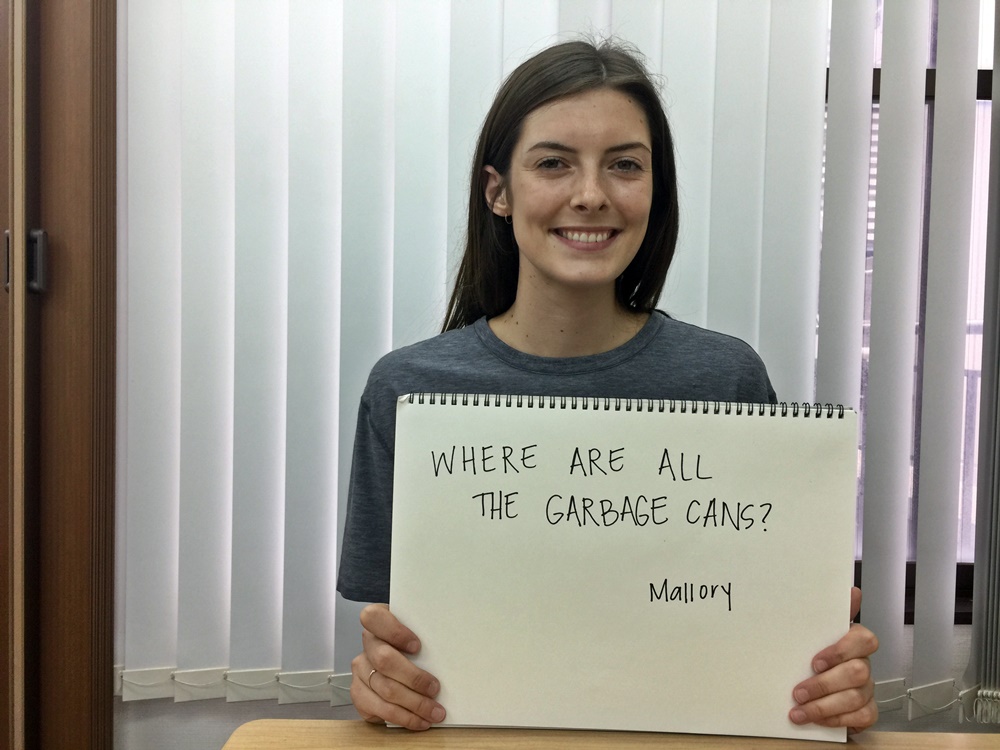 WHERE ARE ALL
THE GARBAGE CANS?
Mallory